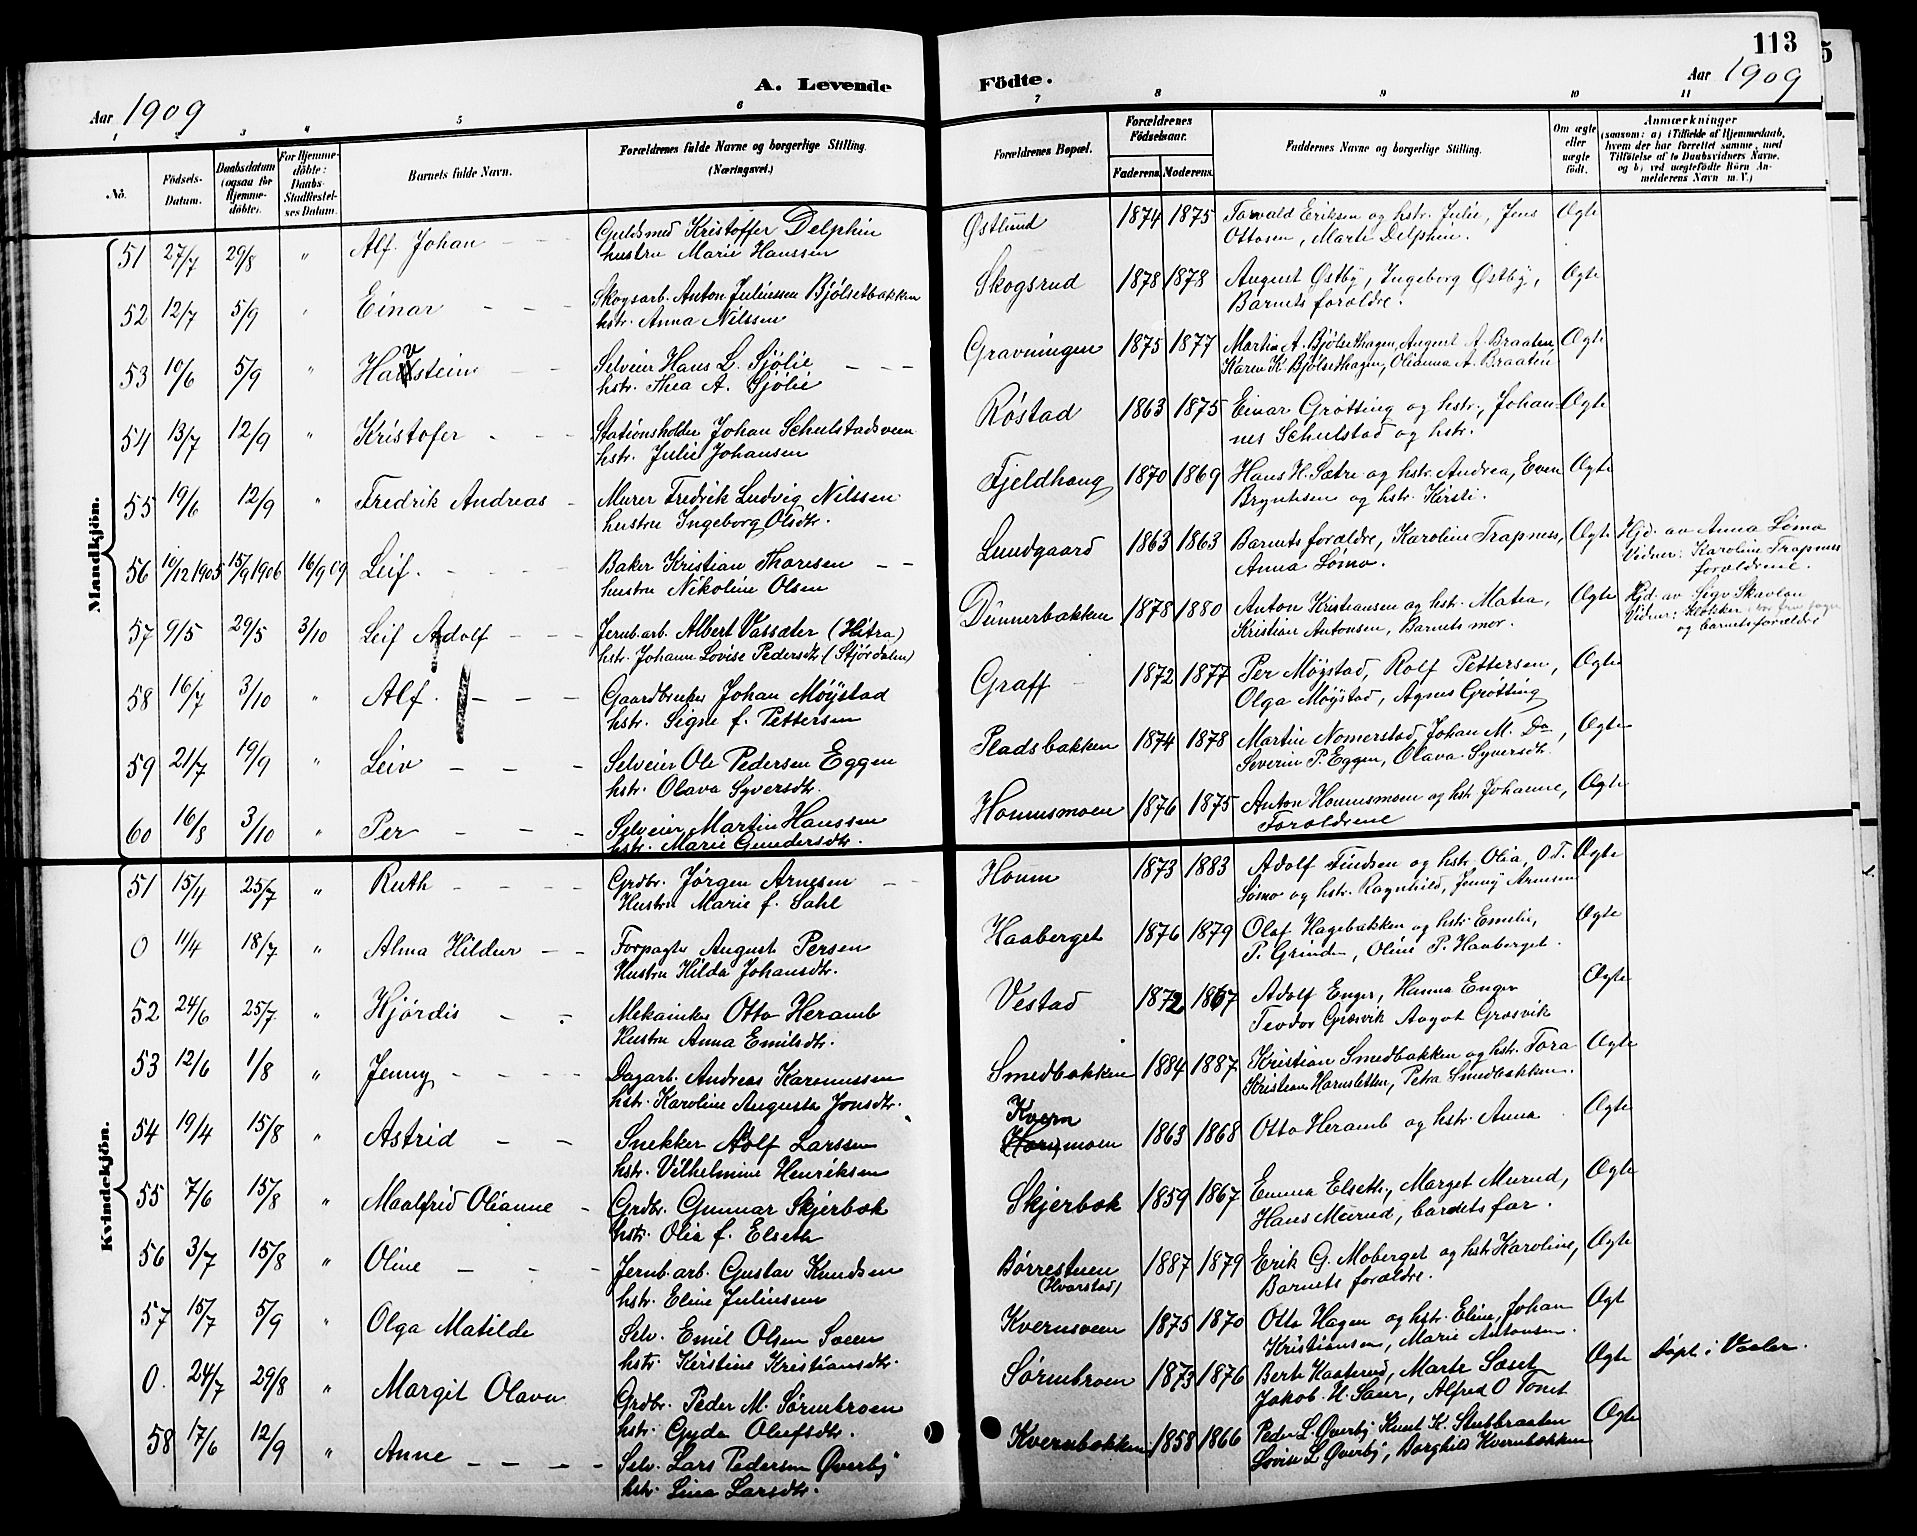 113
A. Levende Födte.
Aar 1909
Aar 1909
1 2 3 4 5 6 7 8 9 10 11
No.
Födsels-Datum.
Daabsdatum (ogsaa for Hjemme-döbte).
For Hjemme-döbte: Daabs-Stadfæstelses Datum.
Barnets fulde Navn.
Forældrenes fulde Navne og borgerlige Stilling. (Næringsvei.)
Forældrenes Bopæl.
Forældrenes Födselsaar.
Faderens. Moderens.
Faddernes Navne og borgerlige Stilling.
Om ægte eller uægte födt.
Anmærkninger
(saasom: a) i Tilfælde af Hjemmedaab, hvem der har forrettet samme, med Tilföielse af to Daabsvidners Navne, og b) ved uægtefödte Börn Anmelderens Navn m. V.)
Mandkjön.
51 27/7 29/8 " Alf Johan - - - Guldsmed Kristoffer Delphin Østlund 1874 1875 Torvald Eriksen og hstr. Julie, Jens Ægte
hustru Marie Hanssen Ottosen, Marte Delphin.
52 12/7 5/9 " Einar - - - Skogsarb. Anton Juliussen Bjølsetbakken Skogsrud 1878 1878 August Østby, Ingeborg Østby, Ægte
hstr. Anna Nilssen Barnets forældre.
53 10/6 5/9 " Havstein - - Selveier Hans L. Sjølie - - - Gravningen 1875 1877 Martin A. Bjølsethagen, August A. Braaten Ægte
hstr. Thea A. Sjølie Karen K. Bjølsethagen, Olianna A. Braaten
54 13/7 12/9 " Kristofer - - - Stationsholder Johan Schulstadsveen Røstad 1863 1875 Einar Grøtting og hstr., Johan- Ægte
hstr. Julie Johansen nes Schulstad og hstr.
55 19/6 12/9 " Fredrik Andreas - Murer Fredrik Ludvig Nilssen Fjeldhaug 1870 1869 Hans H. Sætre og hstr. Andrea, Even Ægte
hustru Ingeborg Olsdtr. Bryntesen og hstr. Kirsti.
56 10/12 1905 15/9 1906 16/9 09 Leif. - - - Baker Kristian Thoresen - - Lundgaard 1863 1863 Barnets forældre, Karoline Trapness, Ægte Hjd. av Anna Lømo
hustru Nikoline Olsen Anna Lømo. Vidner: Karoline Trapness
forældrene.
57 9/5 29/5 3/10 Leif Adolf - - - Jernb.arb. Albert Vassæter (Hitra) Dunnerbakken 1878 1880 Anton Kristiansen og hstr. Matea, Ægte Hjd. av Sigv Skavlan
hstr. Johann Lovise Pedersdtr (Stjørdalen) Kristian Antonsen, Barnets mor. Vidner: Klokker
og barnets forældre
58 16/7 3/10 " Alf. - - - Gaardbruker Johan Møystad Graff - 1872 1877 Per Møystad, Rolf Pettersen, Ægte
hstr. Signe f. Pettersen Olga Møystad, Agnes Grøtting
59 21/7 19/9 " Leiv - - - Selveier Ole Pedersen Eggen Pladsbakken 1874 1878 Martin Nomerstad, Johan M. Do, Ægte
hstr. Olava Syversdtr. Severin P. Eggen, Olava Syversdt.
60 16/8 3/10 " Per - - - Selveier Martin Hanssen Hommsmoen 1876 1875 Anton Hommsmoen og hstr Johanne, Ægte
hstr. Marie Gundersdtr. Forældrene
Kvindekjön.
51 15/4 25/7 " Ruth - - - Grdbr. Jørgen Arnesen - - Homm 1873 1883 Adolf Findsen og hstr Olia, O.T. Ægte
Hustru Marie f. Dahl Lømo og hstr. Ragnhild, Jenny Arnesen
0 11/4 18/7 " Alma Hildur - - Forpagter August Persen Haaberget 1876 1879 Olaf Hagebakken og hstr Emelie, Ægte
Hustru Hilda Johansdtr. P. Grinden, Oline P. Haaberget.
52 24/6 25/7 " Hjørdis - - Mekaniker Otto Heramb Vestad 1872 1867 Adolf Enger, Hanna Enger Ægte
Hustru Anna Emilsdtr. Teodor Græsvik Aagot Græsvik
53 12/6 1/8 " Jenny - - - Dagarb. Andreas Rasmussen Smedbakken 1884 1887 Kristian Smedbakken og hstr. Tora Ægte
hstr. Karoline Augusta Jonsdtr. Kristian Harnsletten, Petra Smedbakken.
54 19/4 15/8 " Astrid - - Snekker Adolf Larssen Kvernmoen 1863 1868 Otto Heramb og hstr. Anna Ægte
hstr. Vilhelmine Henriksen
55 7/6 15/8 " Maalfrid Olianne - Grdbr. Gunnar Skjerbæk Skjerbæk 1859 1867 Emma Elseth, Marget Murud, Ægte
hstr. Olia f. Elseth Hans Murud, barnets far.
56 3/7 15/8 " Oline - - - Jernb.arb. Gustav Knudsen Børrestuen 1887 1879 Erik G. Moberget og hstr Karoline, Ægte
hstr. Eline Juliussen (Hvarstad) Barnets forældre.
57 15/7 5/9 " Olga Matilde Selv. Emil Olsen Sveen Kvernsveen 1875 1870 Otto Hagen og hstr. Eline, Johan Ægt
hstr. Kirstine Kristiansdtr. Kristiansen, Marie Antonsen.
0. 24/7 29/8 " Margit Olava Grdbr. Peder M. Sørmbroen Sørmbroen 1873 1876 Berte Kaaterud, Marte Sæset Ægte Døpt i Vaaler.
hstr. Gyda Olufsdtr. Jakob H. Saur, Alfred O Tomt
58 17/6 12/9 " Anne - - - - Selv. Lars Pedersen Øverby Kvernbakken 1858 1866 Peder L. Øverby, Knut K. Stubbraaten Ægte
hstr. Lina Larsdtr. Lovise L Øverby, Borghild Kvernbakken